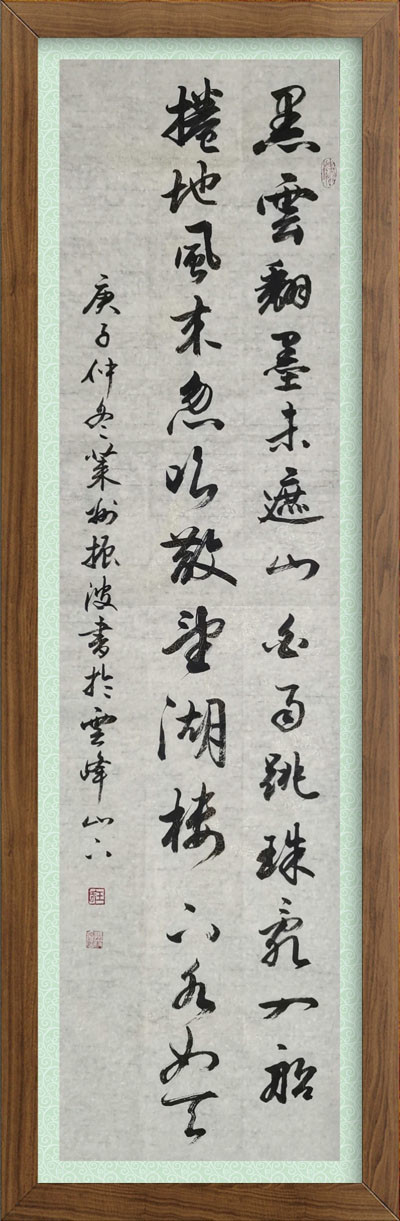 黑雲翻墨未遮山白雨跳珠亂入船
捲地風来忽吹散望湖樓下水如天
庚子仲冬萊州振波書於雲峰山下